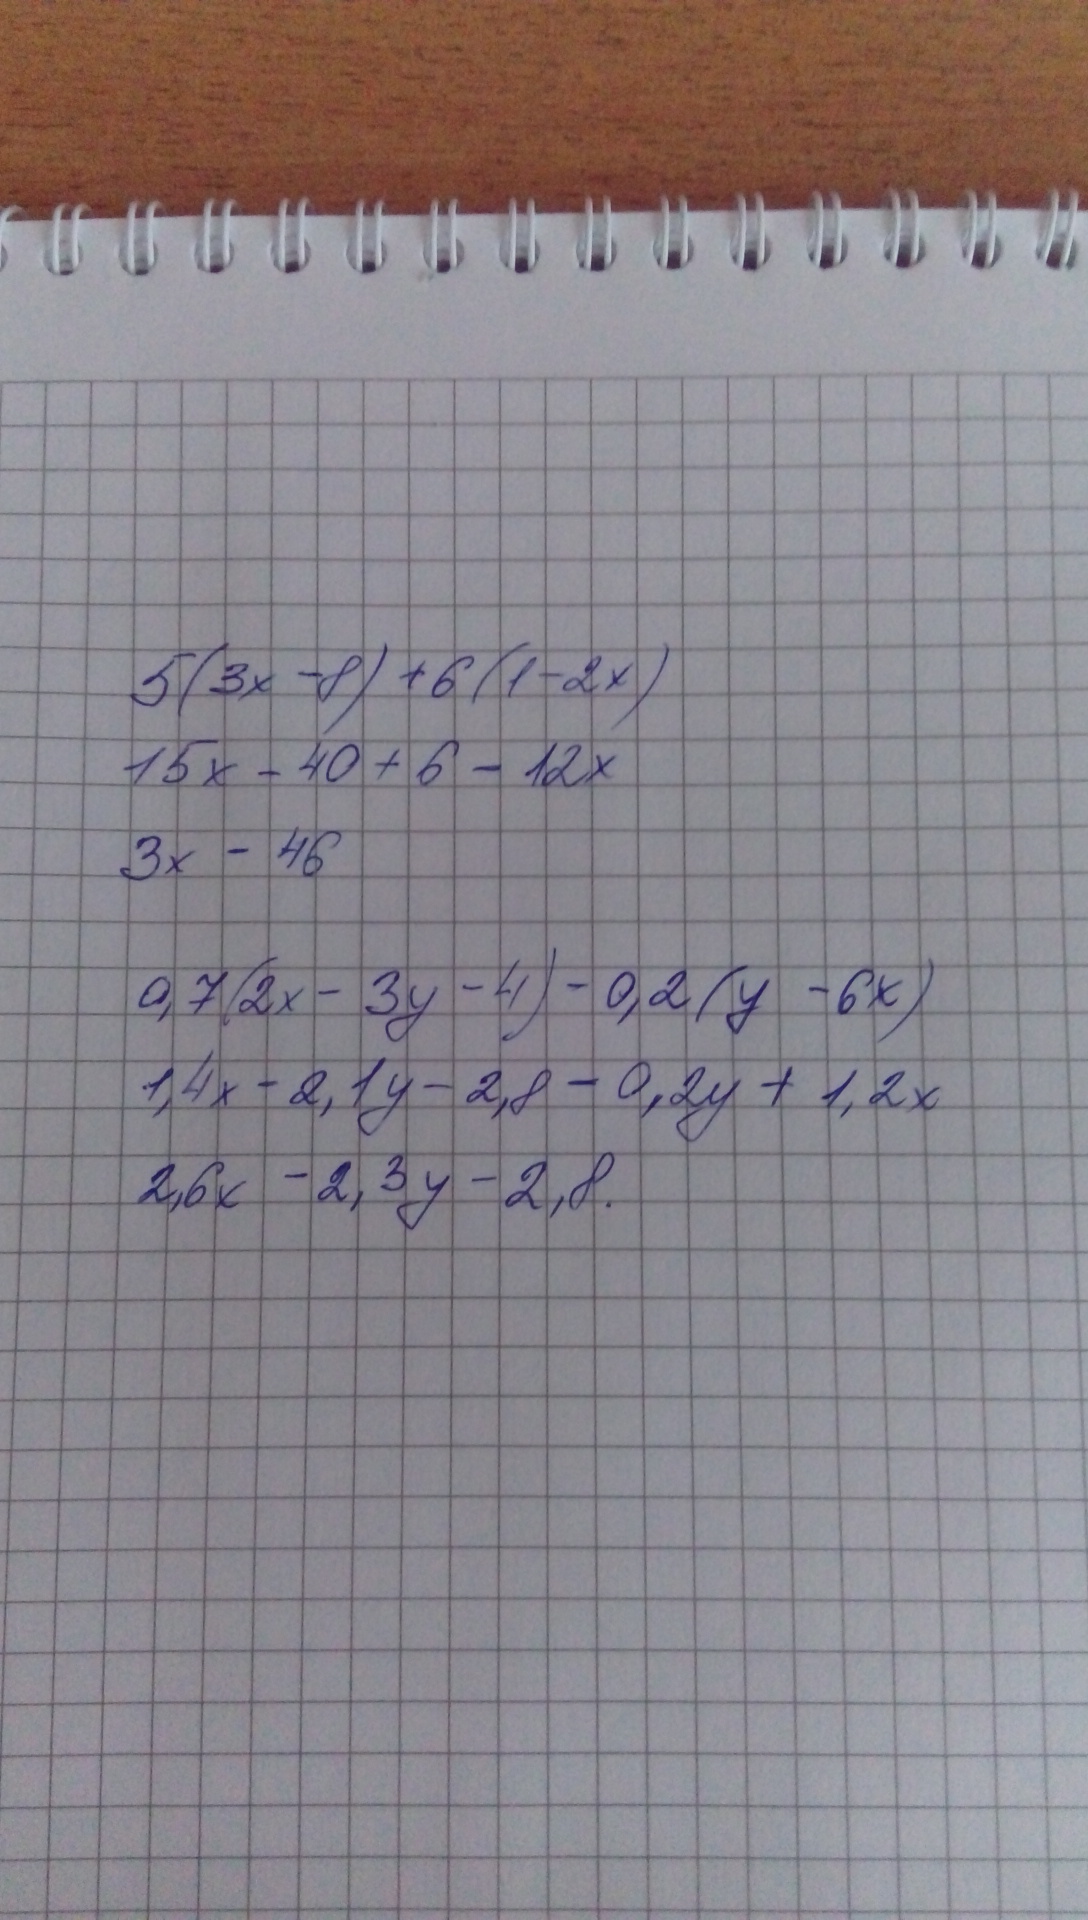 5(3x - 8) + 6(1 - 2x)
15x - 40 + 6 - 12x
3x - 46
0,7(2x - 3y - 4) - 0,2(y - 6x)
1,4x - 2,1y - 2,8 - 0,2y + 1,2x
2,6x - 2,3y - 2,8.